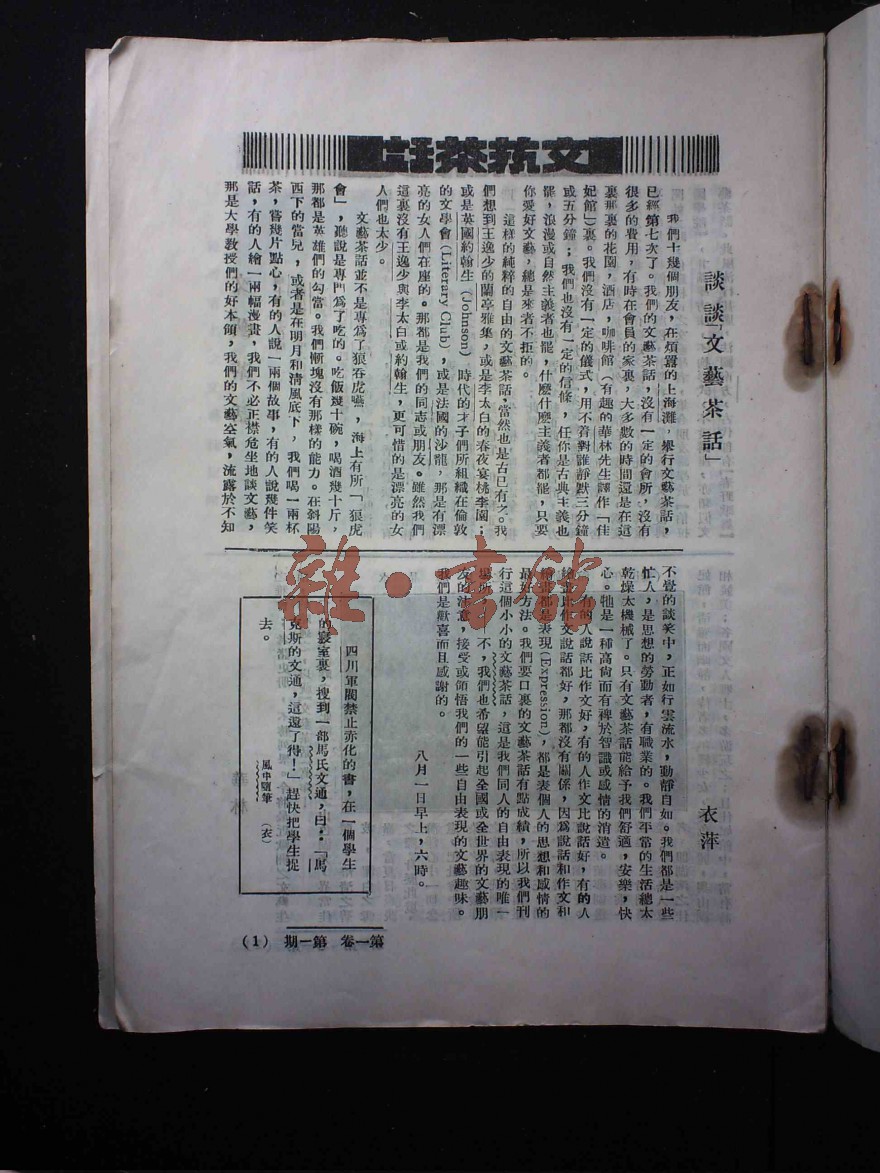 文藝茶話
談談「文藝茶話」
衣萍
我們十幾個朋友，在煩囂的上海灘，舉行文藝茶話，
已經第七次了。我們的文藝茶話，沒有一定的會所，沒有
很多的費用，有時在會員的家裏，大多數的時間還是在這
裏那裏的花園，酒店，咖啡館（有趣的華林先生譯作「佳
妃館」）裏。我們沒有一定的儀式，用不着對誰靜默三分鐘
或五分鐘；我們也沒有一定的信條，任你是古典主義也
罷，浪漫或自然主義者也罷，什麼什麼主義者都罷，只要
你愛好文藝，總是來者不拒的。
這樣的純粹的自由的文藝茶話，當然也是古已有之。我
們想到王逸少的蘭亭雅集，或是李太白的春夜宴桃李園；
或是英國約翰生（Johnson）時代的才子們所組織在倫敦
的文學會（Literary Club），或是法國的沙龍，那是有漂
亮的女人們在座的。那都是我們的同志或朋友。雖然我們
這裏沒有王逸少與李太白或約翰生，更可惜的是漂亮的女
人們也太少。
文藝茶話並不是專爲了狼吞虎嚥，海上有所「狼虎
會」，聽說是專門爲了吃的。吃飯幾十碗，喝酒幾十斤，
那都是英雄們的勾當。我們慚塊沒有那樣的能力。在斜陽
西下的當兒，或者是在明月和清風底下，我們喝一兩杯
茶，嘗幾片點心，有的人說一兩個故事，有的人說幾件笑
話，有的人繪一兩幅漫畫，我們不必正襟危坐地談文藝，
那是大學教授們的好本領，我們的文藝空氣，流露於不知
不覺的談笑中，正如行雲流水，動靜自如。我們都是一些
忙人，是思想的勞動者，有職業的。我們平常的生活總太
乾燥太機械了。只有文藝茶話能給予我們舒適，安樂，快
心。牠是一種高尚而有裨於智識或感情的消遣。
有的人說話比作文好，有的人作文比說話好，有的人
繪畫比作文說話都好，那都沒有關係，因爲說話和作文和
繪畫都是表現（Expression），都是表個人的思想和感情的
最好方法。我們要口裏的文藝茶話有點成績，所以我們刊
行這個小小的文藝茶話，這是我們同人的自由表現的唯一
場所。不，我們也希望能引起全國或全世界的文藝朋
友的注意，接受或領悟我們的一些自由表現的文藝趣味。
我們是歡喜而且感謝的。
八月一日早上，六時。
四川軍閥禁止赤化的書，在一個學生
的寢室裏，搜到一部馬氏文通，曰：「馬
克斯的文通，這還了得！」趕快把學生捉
去。
風中隨筆（衣）
第一卷 第一期 （1）
雜·書館